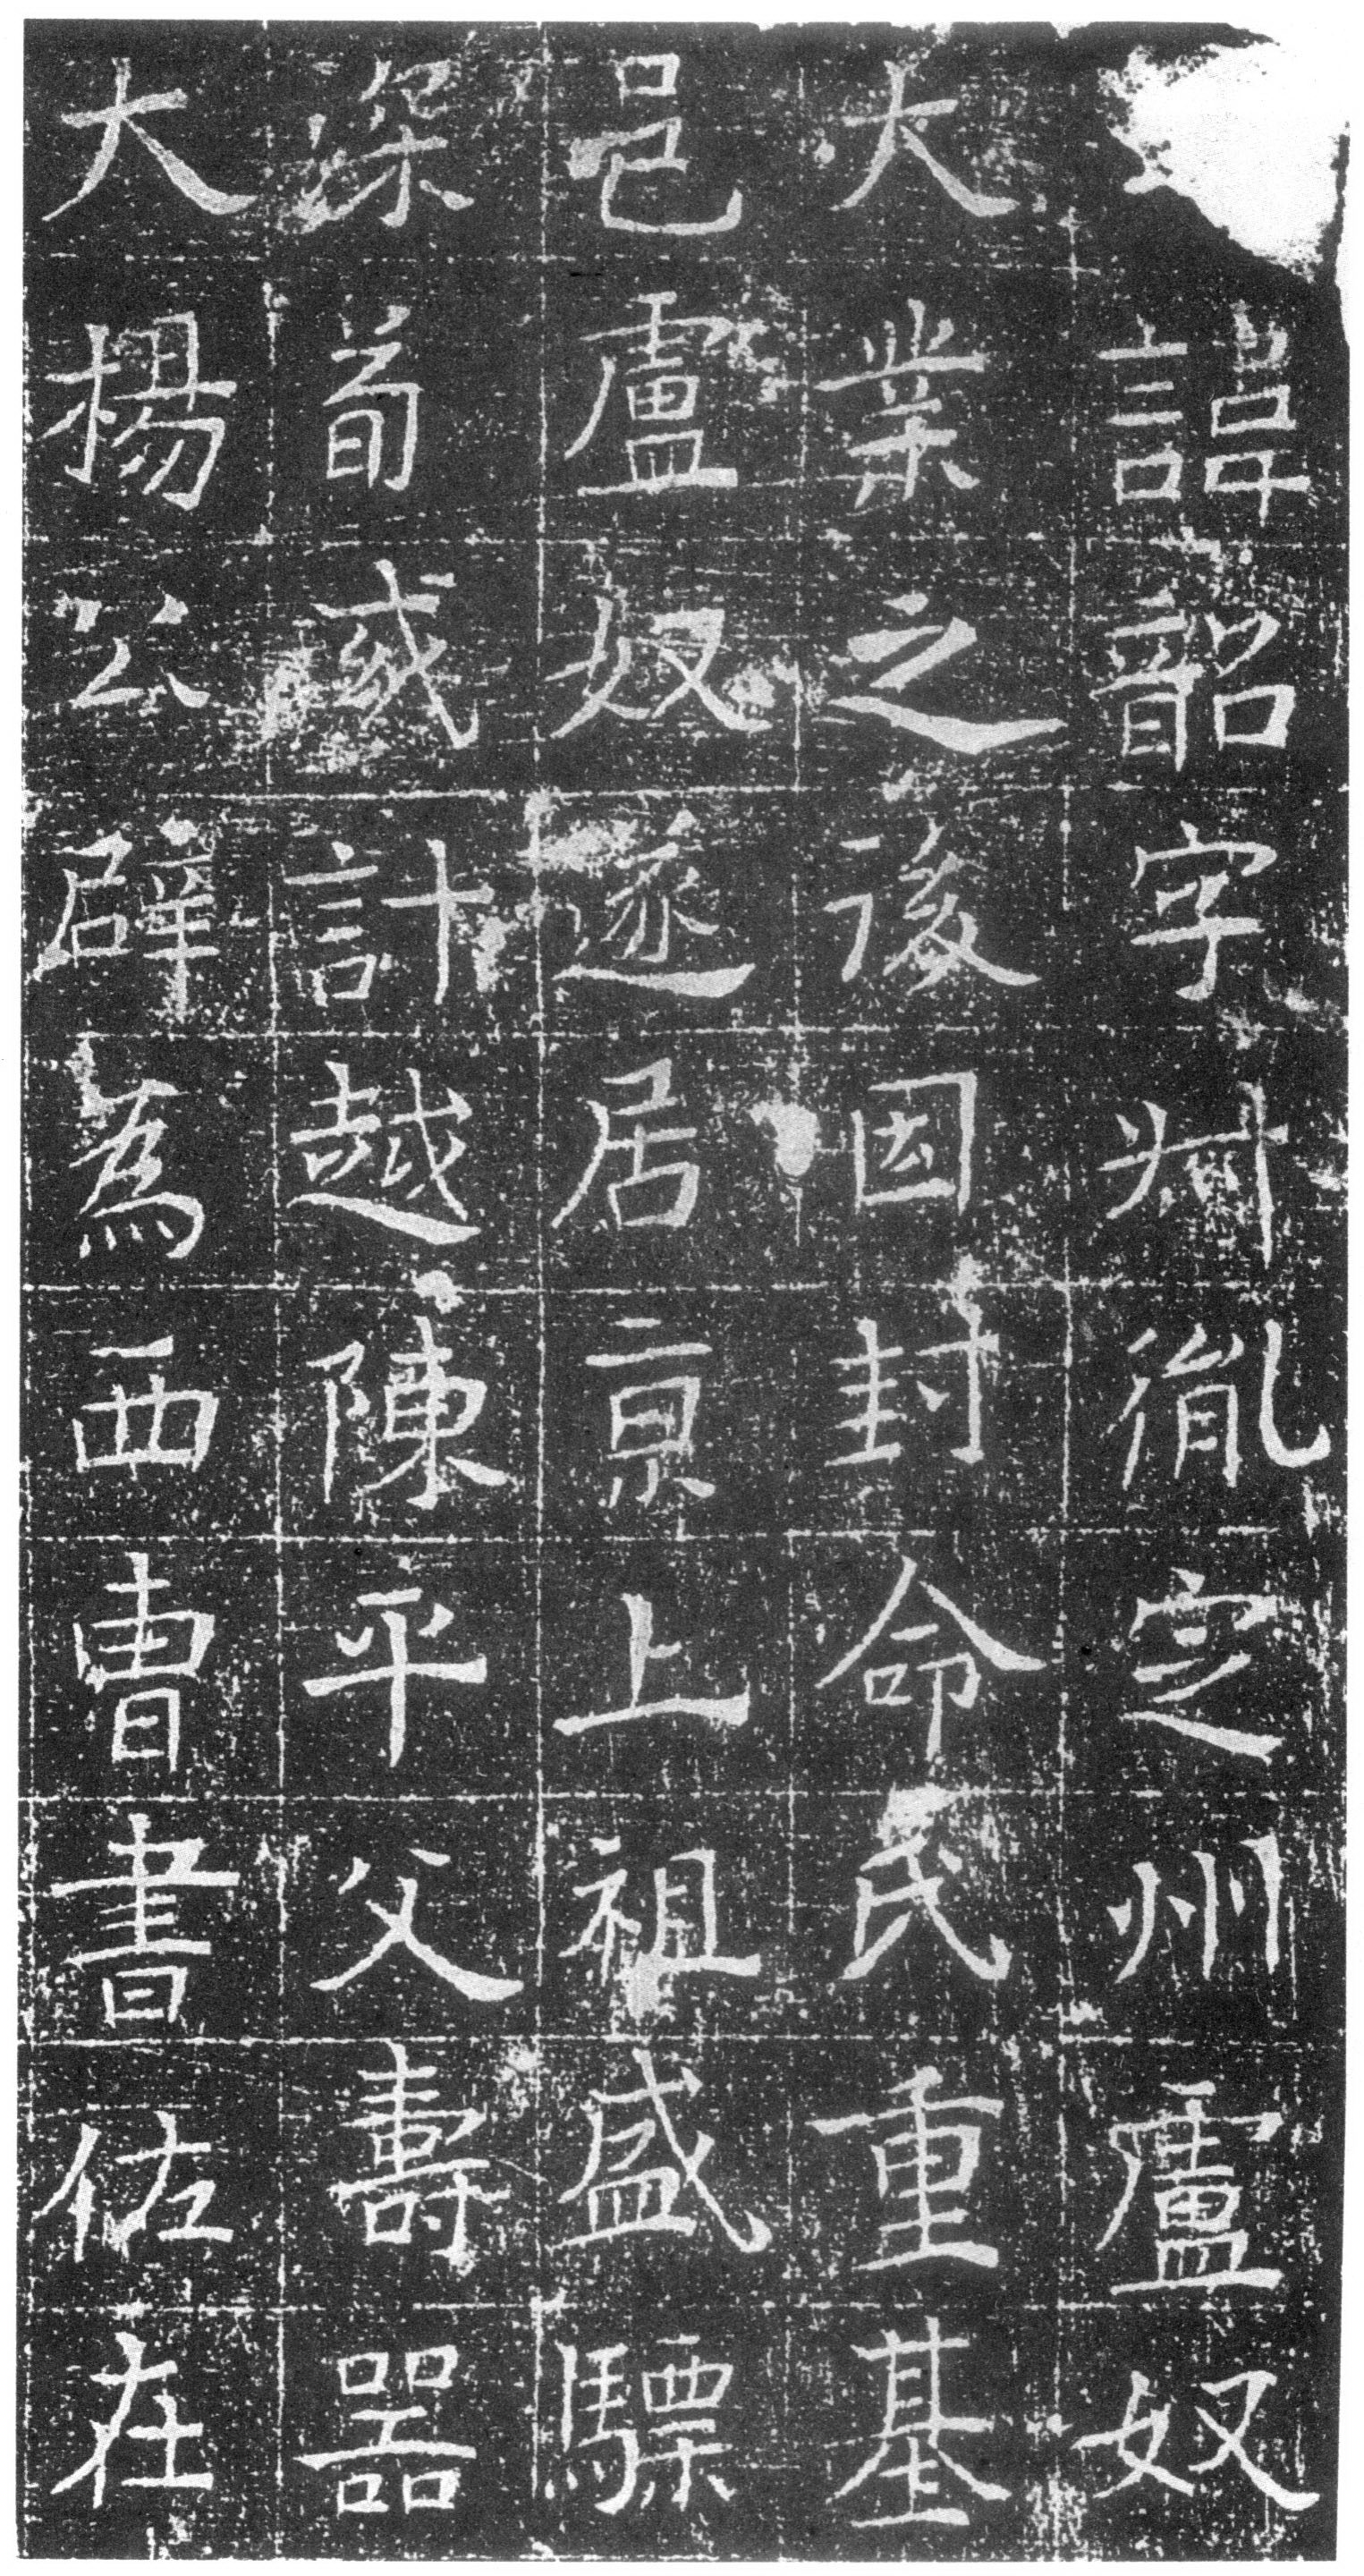 諱韶字叔胤定州盧奴
大業之後因封命氏重基
邑盧奴遂居京上祖盛驃
深荀彧計越陳平父壽器
大楊公辟為西曹書佐在